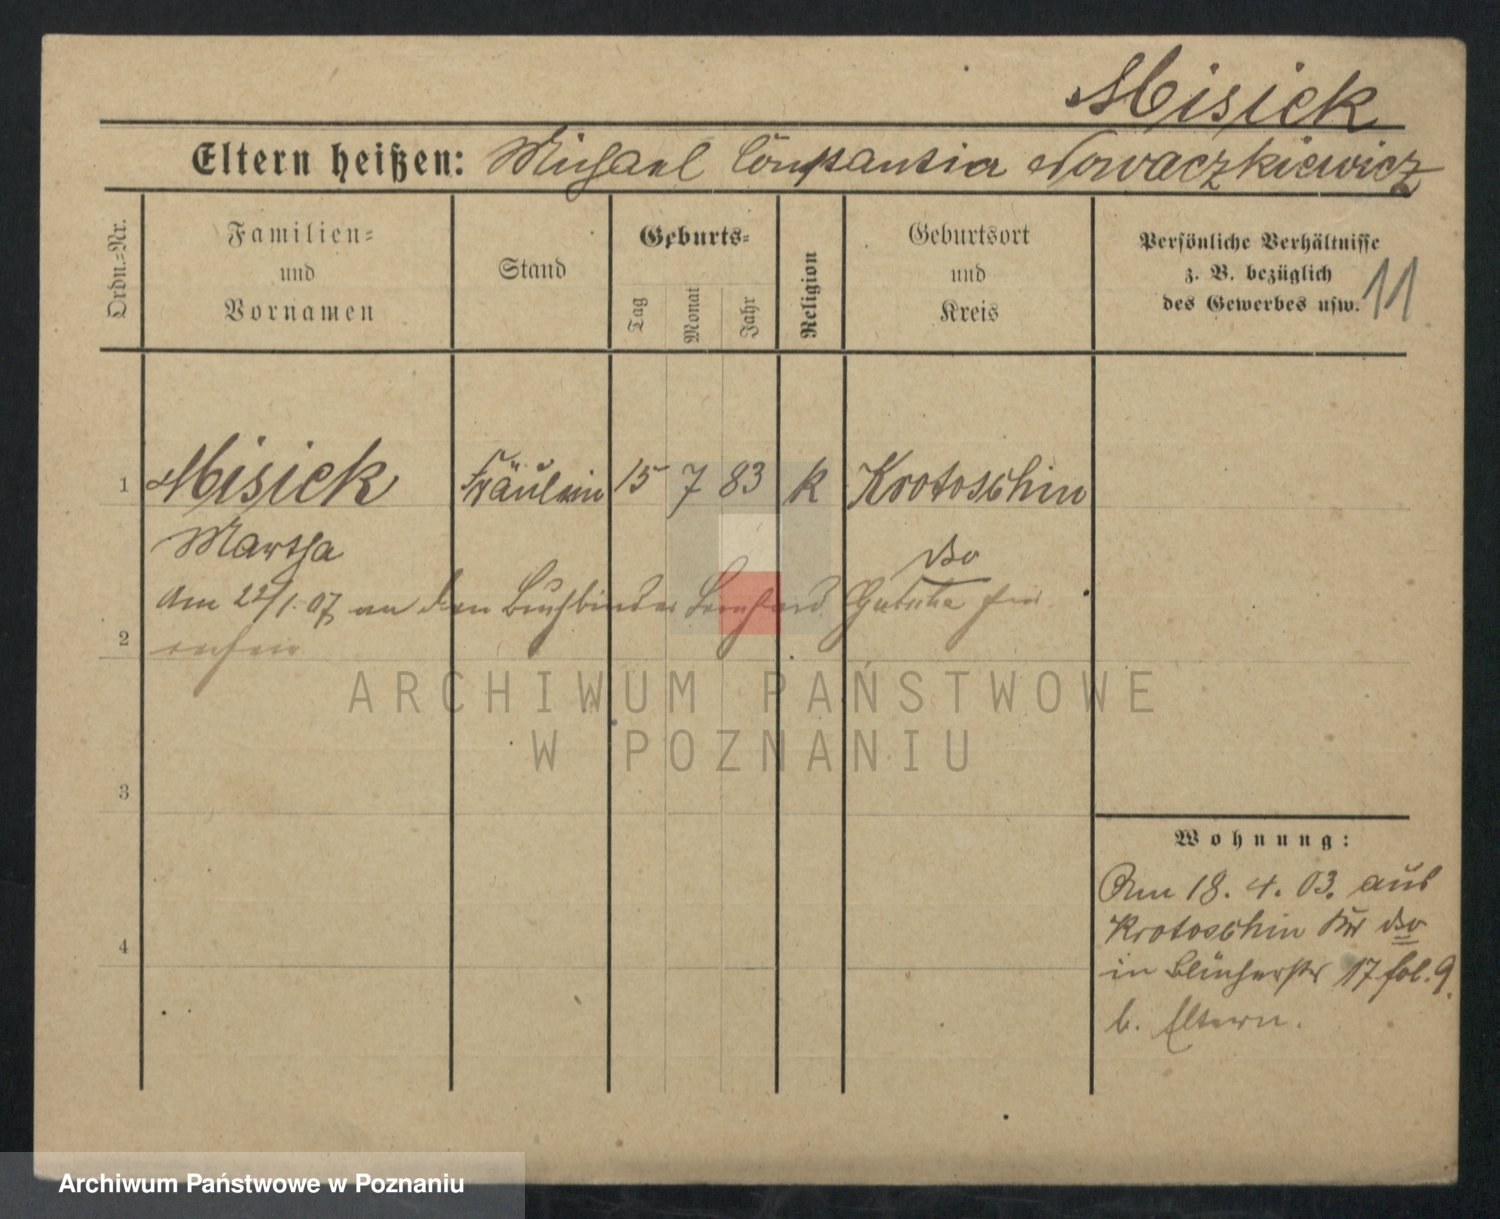 Misiek
Eltern heißen: Michael Constantia Nowaczkiewicz
Ordn.-Nr.
Familien-
und
Vornamen
Stand
Geburts-
Tag
Monat
Jahr
Religion
Geburtsort
und
Kreis
Persönliche Verhältnisse
z. B. bezüglich
des Gewerbes usw. 11
1 Misiek Fräulein 15 7 83 k Krotoschin
Martha dto
Am 22/1. 07 an den Buchbinder Bernhard
2
3
4
Wohnung:
Am 18. 4. 03. aus
Krotoschin Kr dto
in Blücherstr 17 fol. 9.
b. Eltern.
ARCHIWUM PAŃSTWOWE
W POZNANIU
Archiwum Państwowe w Poznaniu